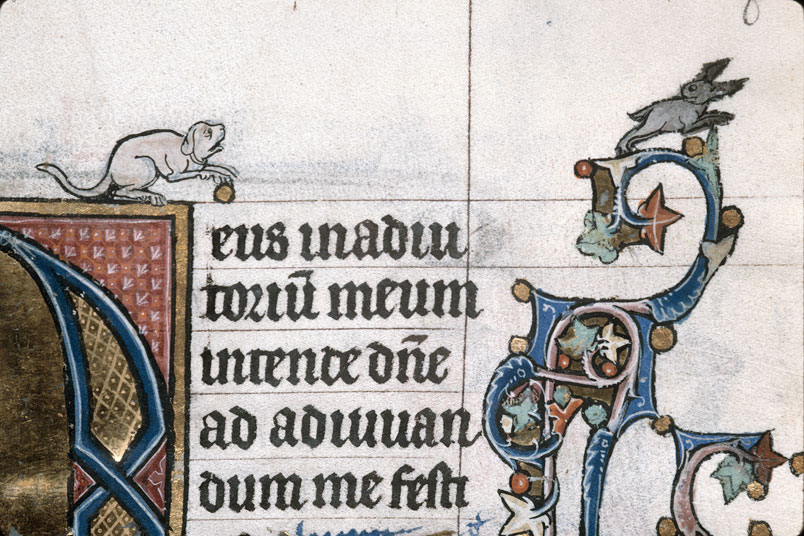 eus in adiu
toriū meum
intende dñe
ad adiuuan
dum me festi